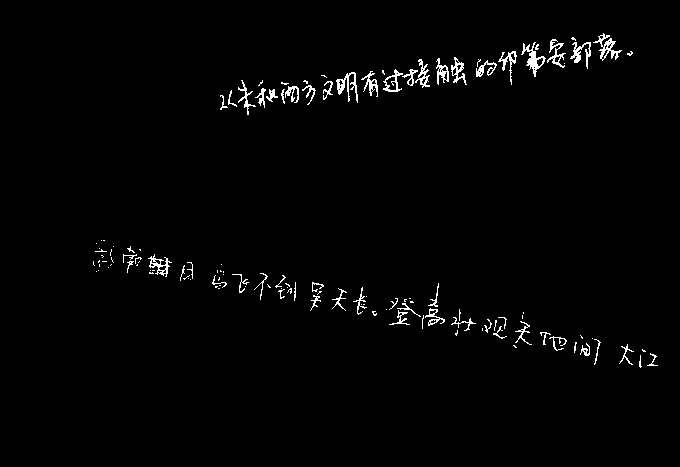 以未和西方文明有过接触的印第安部落。
影常朝日鸟飞不到吴天长。登高壮观天地间大江